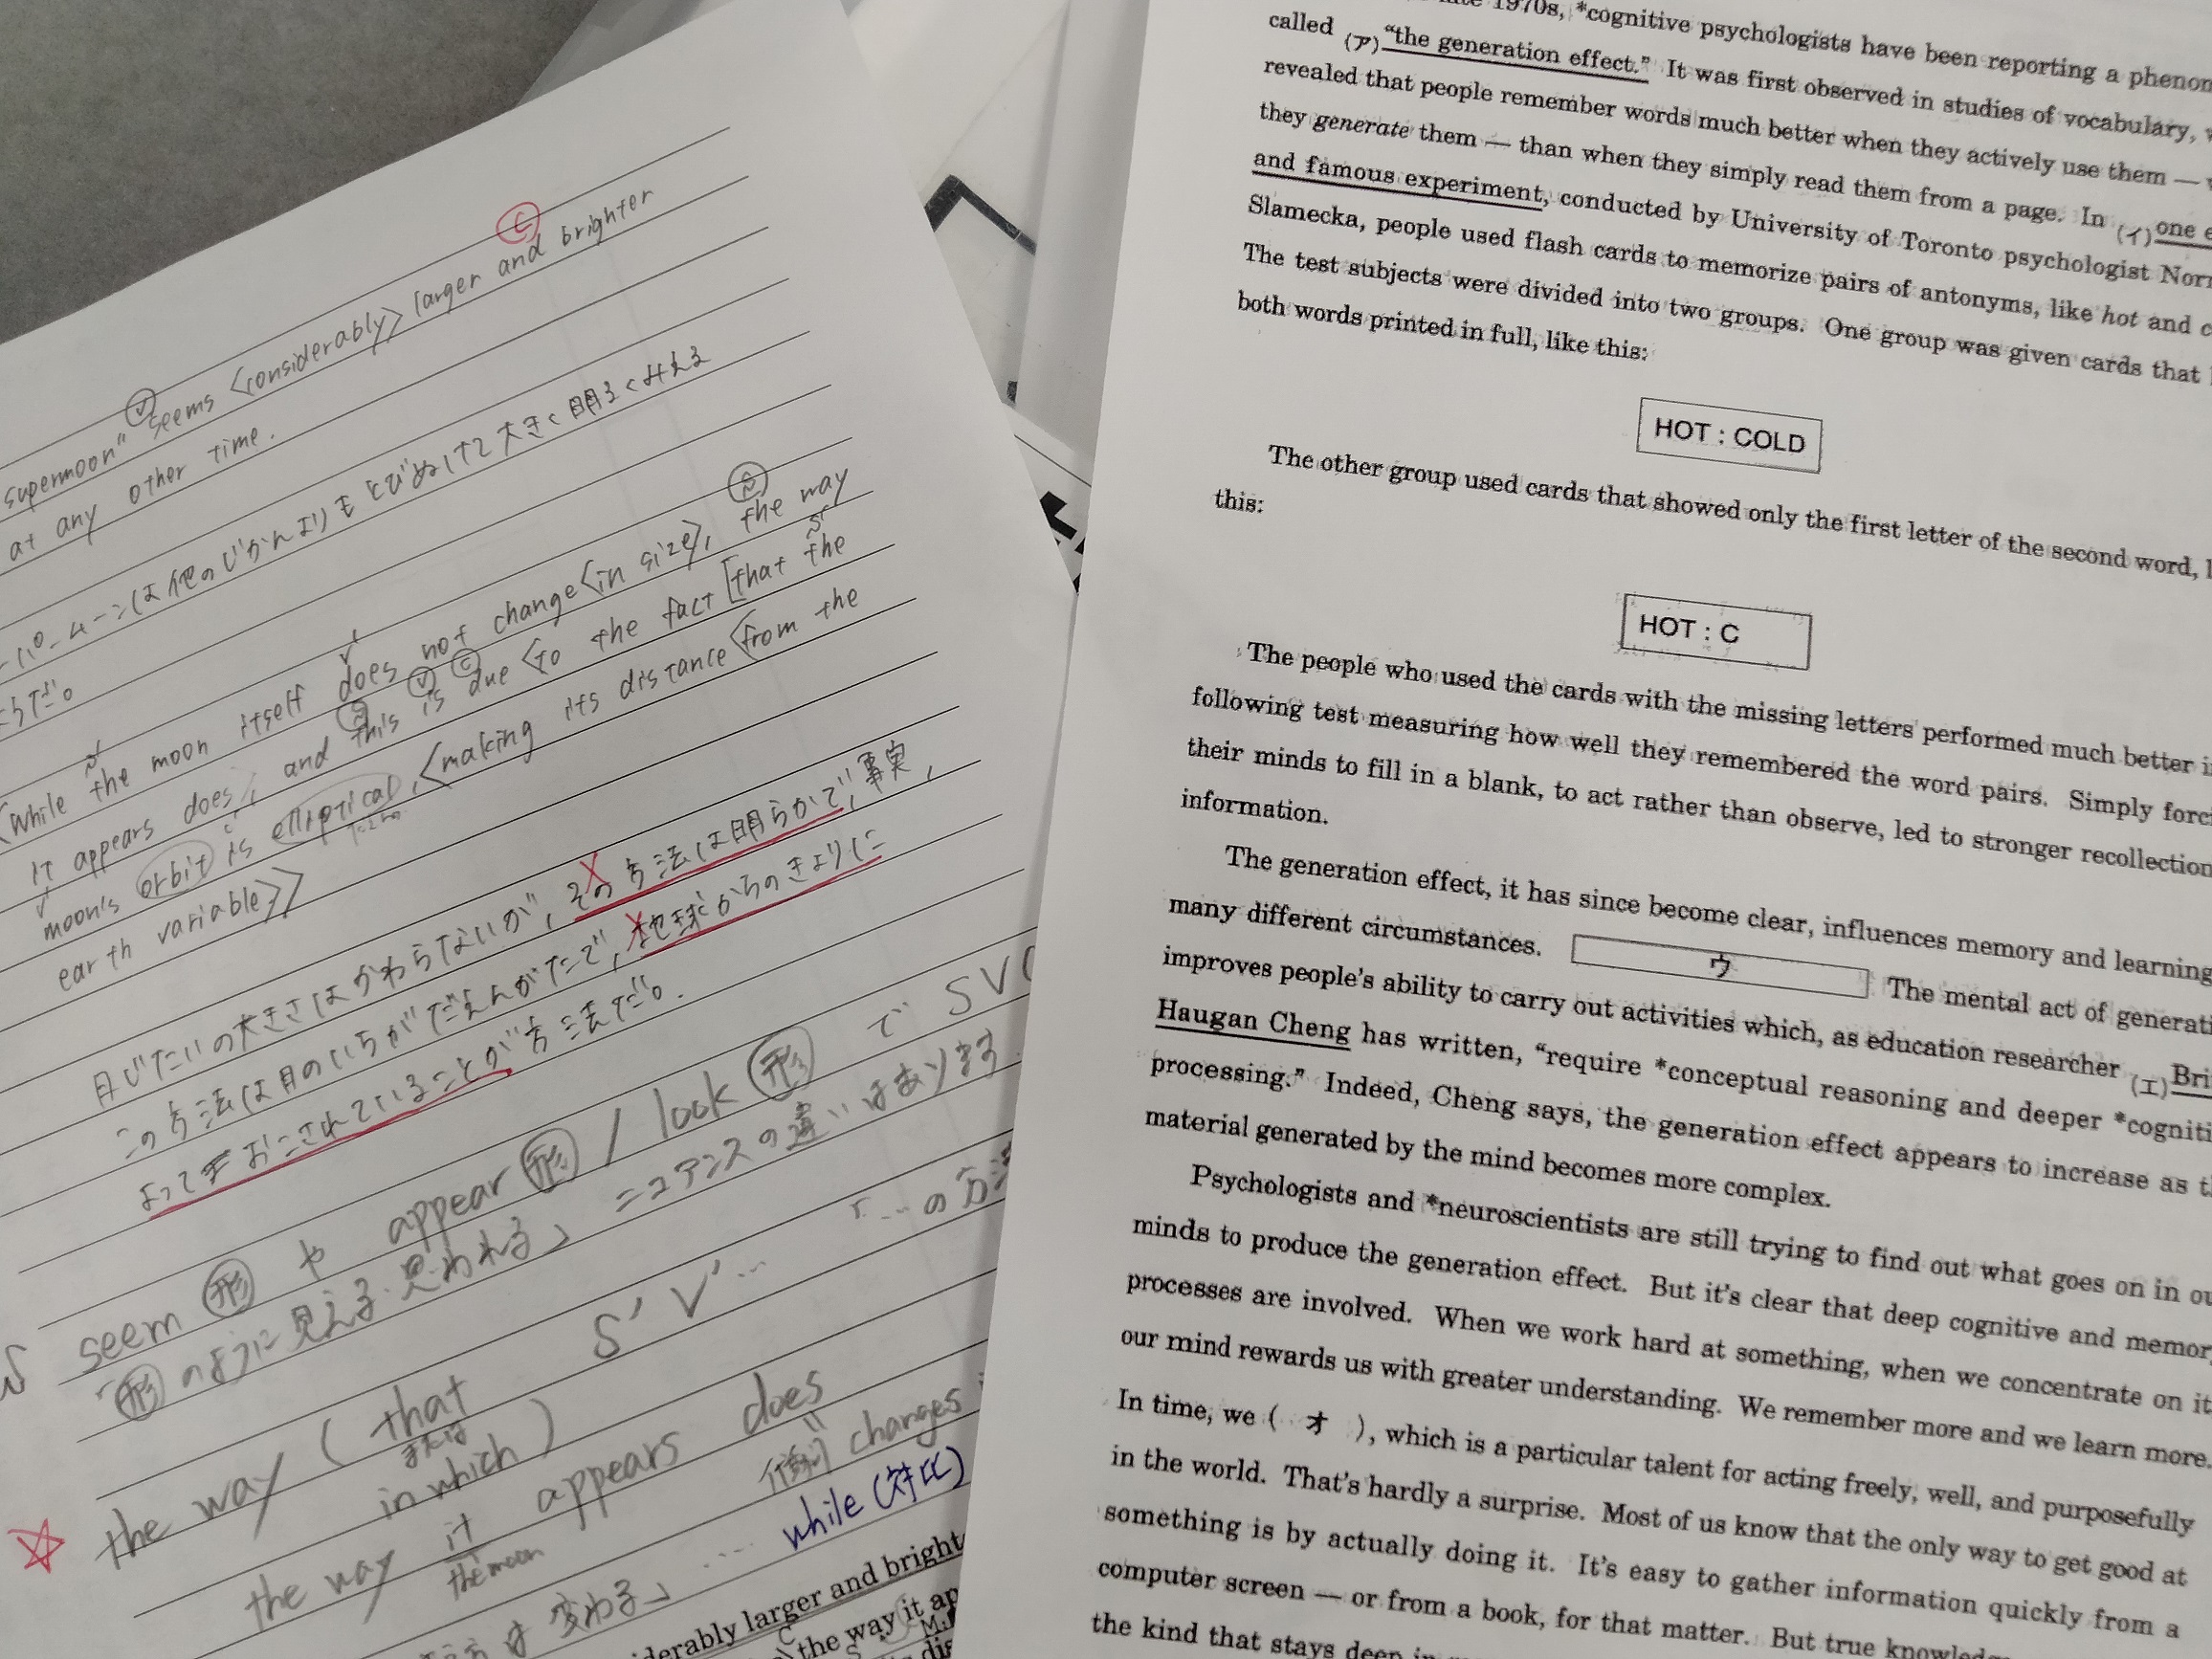 supermoon" seems <considerably> larger and brighter
at any other time.
は他のじかんよりもとびぬけて大きく明るくみえる
そうだ。
<While the moon itself does not change <in size>, the way
it appears does>, and this is due <to the fact [that the
moon's orbit is elliptical, <making its distance <from the
earth variable>>
月じたいの大きさはかわらないが、その方法は明らかで、事実、
この方法は月のいちがだえんがたで、地球からのきょりに
よっておこされていることが方法だ。
seem 形 や appear 形 / look 形 で SVC
「形のように見える・思われる」 ニュアンスの違いはあります
the way ( that S' V' … 「…の方法
または
in which )
the way it appears does
the moon
changes
変わる」 …… while (対比)
iderably larger and brighte
the way it ap
1970s, *cognitive psychologists have been reporting a phenom
called (ア)"the generation effect." It was first observed in studies of vocabulary, w
revealed that people remember words much better when they actively use them —
they generate them — than when they simply read them from a page. In (イ)one e
and famous experiment, conducted by University of Toronto psychologist Nor
Slamecka, people used flash cards to memorize pairs of antonyms, like hot and c
The test subjects were divided into two groups. One group was given cards that
both words printed in full, like this:
HOT : COLD
The other group used cards that showed only the first letter of the second word, l
this:
HOT : C
The people who used the cards with the missing letters performed much better i
following test measuring how well they remembered the word pairs. Simply forc
their minds to fill in a blank, to act rather than observe, led to stronger recollection
information.
The generation effect, it has since become clear, influences memory and learning
many different circumstances. ウ The mental act of generati
improves people's ability to carry out activities which, as education researcher (エ)Bri
Haugan Cheng has written, "require *conceptual reasoning and deeper *cogniti
processing." Indeed, Cheng says, the generation effect appears to increase as t
material generated by the mind becomes more complex.
Psychologists and *neuroscientists are still trying to find out what goes on in ou
minds to produce the generation effect. But it's clear that deep cognitive and memor
processes are involved. When we work hard at something, when we concentrate on it
our mind rewards us with greater understanding. We remember more and we learn more.
In time, we ( オ ), which is a particular talent for acting freely, well, and purposefully
in the world. That's hardly a surprise. Most of us know that the only way to get good at
something is by actually doing it. It's easy to gather information quickly from a
computer screen — or from a book, for that matter. But true knowle
the kind that stays deep in